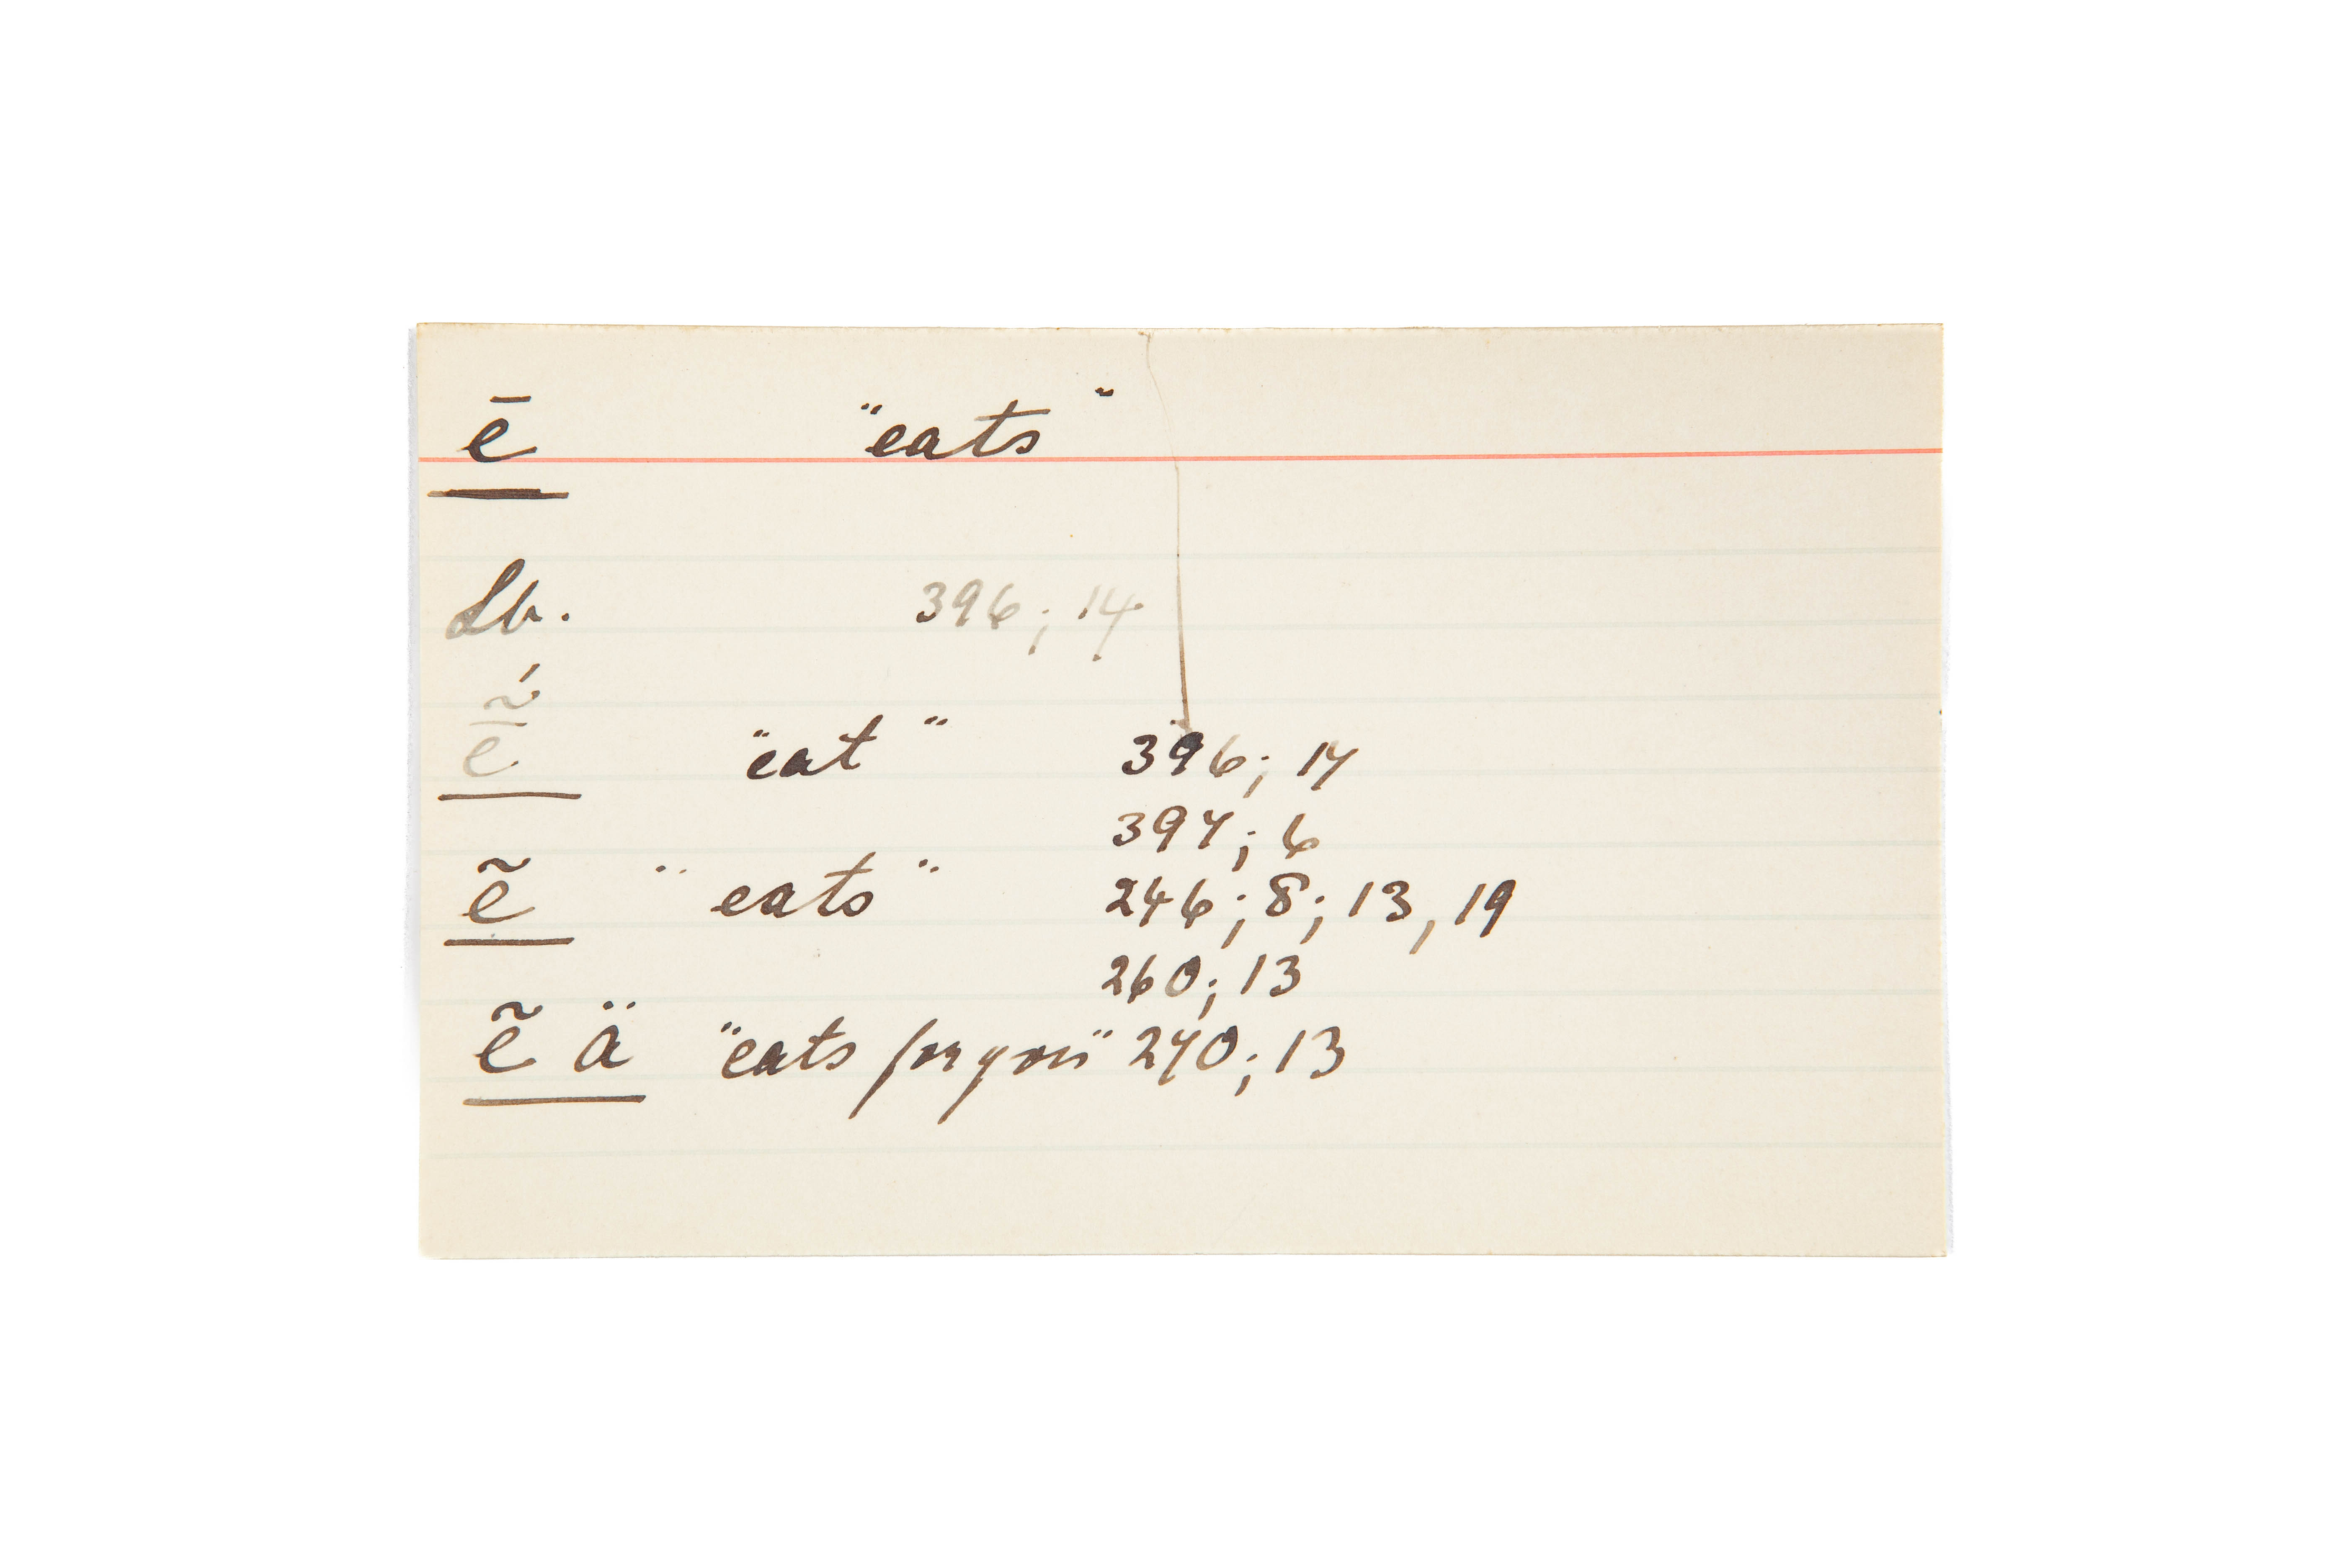 ē "eats"
Lb. 396; 14
ḗ̃ "eat" 396; 14
397; 6
ẽ "eats" 246; 8; 13, 19
260; 13
ẽ ä "eats for you" 270; 13